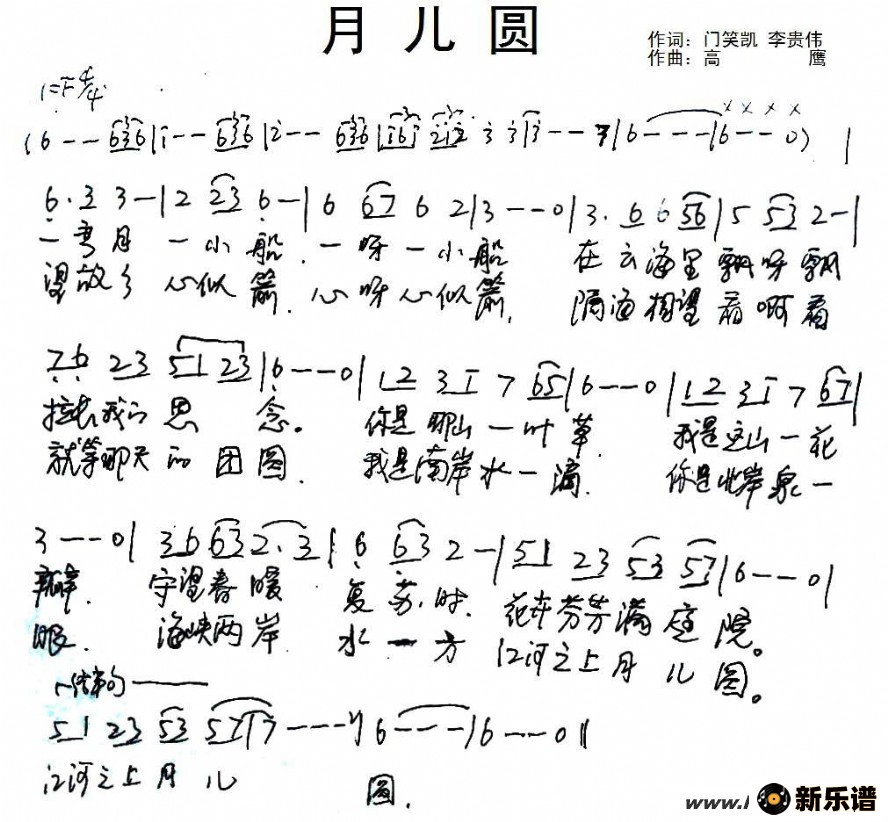 月儿圆
作词：门笑凯 李贵伟
作曲：高 鹰
1=F 4/4
(6 - - 636 | i - - 636 | 2 - - 636 | i6i 2i2 3 3 | 3 - - 7 | 6 - - - | 6 - - 0) |
× × × ×
6. 3 3 - | 2 23 6 - | 6 67 6 2 | 3 - - 0 | 3. 6 6 56 | 5 53 2 - |
一弯月 一小船，一呀一小船 在云海里飘呀飘
望故乡 心似箭，心呀心似箭， 隔海相望看啊看
76 23 51 23 | 6 - - 0 | 12 31 7 65 | 6 - - 0 | 12 31 7 67 |
拉长我的思 念。 你是那山一叶草 我是这山一花
就等那天的团圆. 我是南岸水一滴. 你是北岸泉一
3 - - 0 | 36 63 2. 3 | 6 63 2 - | 51 23 53 57 | 6 - - 0 |
瓣. 守望春暖 复苏时. 花卉芬芳满庭院。
眼. 海峡两岸 水一方 江河之上月儿圆。
结束句
51 23 53 57 | 7 - - - | 6 - - - | 6 - - 0 ‖
江河之上月儿 圆.
www.
新乐谱